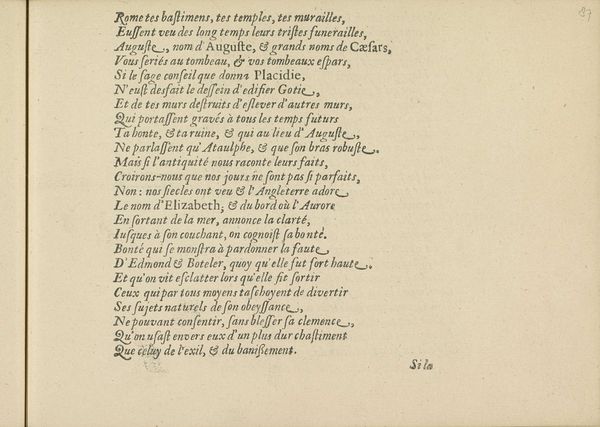 87
Rome tes baſtimens, tes temples, tes murailles,
Euſſent veu des long temps leurs triſtes funerailles,
Auguſte, nom d'Auguſte, & grands noms de Cæſars,
Vous ſeriés au tombeau, & vos tombeaux eſpars,
Si le ſage conſeil que donna Placidie,
N'euſt desfait le deſſein d'edifier Gotie,
Et de tes murs deſtruits d'eſlever d'autres murs,
Qui portaſſent gravés à tous les temps futurs
Ta honte, & ta ruine, & qui au lieu d'Auguſte,
Ne parlaſſent qu'Ataulphe, & que ſon bras robuſte.
Mais ſi l'antiquité nous raconte leurs faits,
Croirons-nous que nos jours ne ſont pas ſi parfaits,
Non: nos ſiecles ont veu & l'Angleterre adore
Le nom d'Elizabeth, & du bord où l'Aurore
En ſortant de la mer, annonce la clarté,
Iuſques à ſon couchant, on cognoiſt ſa bonté.
Bonté qui ſe monſtra à pardonner la faute
D'Edmond & Boteler, quoy qu'elle fut fort haute.
Et qu'on vit eſclatter lors qu'elle fit ſortir
Ceux qui par tous moyens taſchoyent de divertir
Ses ſujets naturels de ſon obeyſſance,
Ne pouvant conſentir, ſans bleſſer ſa clemence,
Qu'on uſaſt envers eux d'un plus dur chaſtiment
Que celuy de l'exil, & du banißement.
Si la